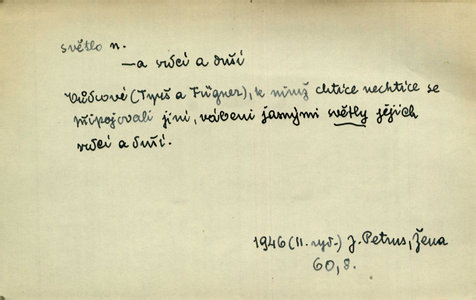 světlo n.
—a srdcí a duší
Vůdcové (Tyrš a Fügner), k nimž chtíce nechtíce se
připojovali jiní, vábeni jasnými světly jejich
srdcí a duší.
1946 (II. vyd.) J. Petrus, Žena
60, 8.